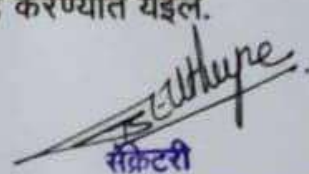 करण्यात येईल.
सेक्रेटरी